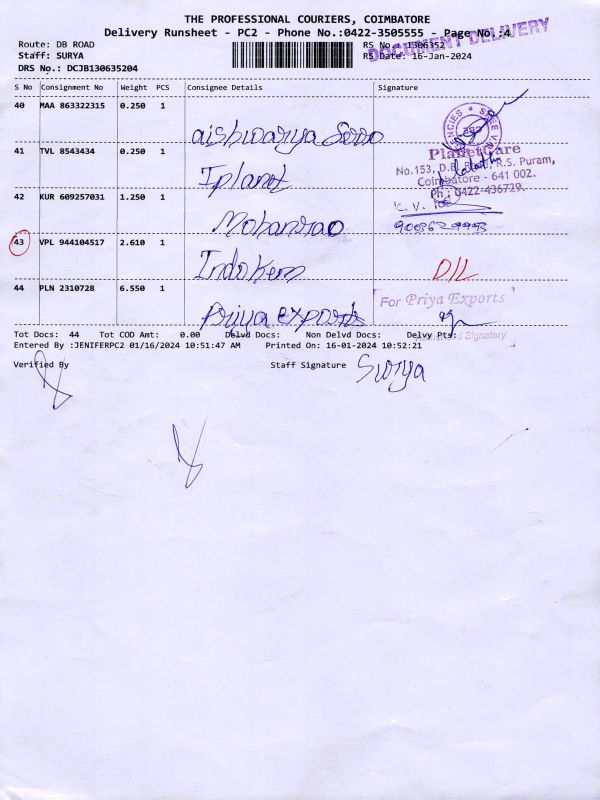 THE PROFESSIONAL COURIERS, COIMBATORE
Delivery Runsheet - PC2 - Phone No.:0422-3505555 - Page No.:4
DOCUMENT DELIVERY
Route: DB ROAD
RS No. 1306352
Staff: SURYA
RS Date: 16-Jan-2024
DRS No.: DCJB130635204
S No Consignment No Weight PCS Consignee Details Signature
40 MAA 863322315 0.250 1
aishwarya
41 TVL 8543434 0.250 1
Iplanet
PlanetCare
No.153, D.B. R.S. Puram,
Coimbatore - 641 002.
Ph : 0422-436729.
42 KUR 609257031 1.250 1
Mohanrao
K. V.
43 VPL 944104517 2.610 1
Indokem
DIL
44 PLN 2310728 6.550 1
Priya exports
For Priya Exports
Signatory
Tot Docs: 44 Tot COD Amt: 0.00 Delvd Docs: Non Delvd Docs: Delvy Pts:
Entered By :JENIFERPC2 01/16/2024 10:51:47 AM Printed On: 16-01-2024 10:52:21
Verified By Staff Signature Surya